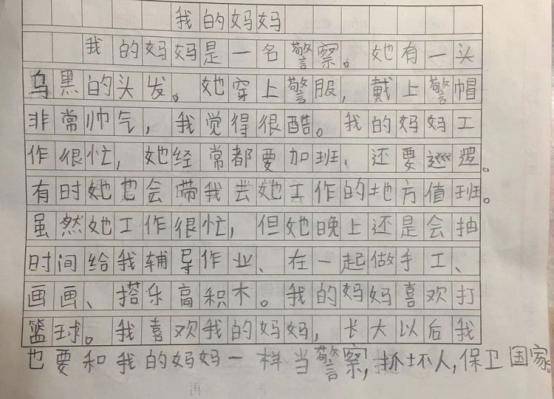 我的妈妈
我的妈妈是一名警察。她有一头
乌黑的头发。她穿上警服，戴上警帽
非常帅气，我觉得很酷。我的妈妈工
作很忙，她经常都要加班、还要巡逻。
有时她也会带我去她工作的地方值班。
虽然她工作很忙，但她晚上还是会抽
时间给我辅导作业、在一起做手工、
画画、搭乐高积木。我的妈妈喜欢打
篮球。我喜欢我的妈妈，长大以后我
也要和我的妈妈一样当警察，抓坏人，保卫国家。